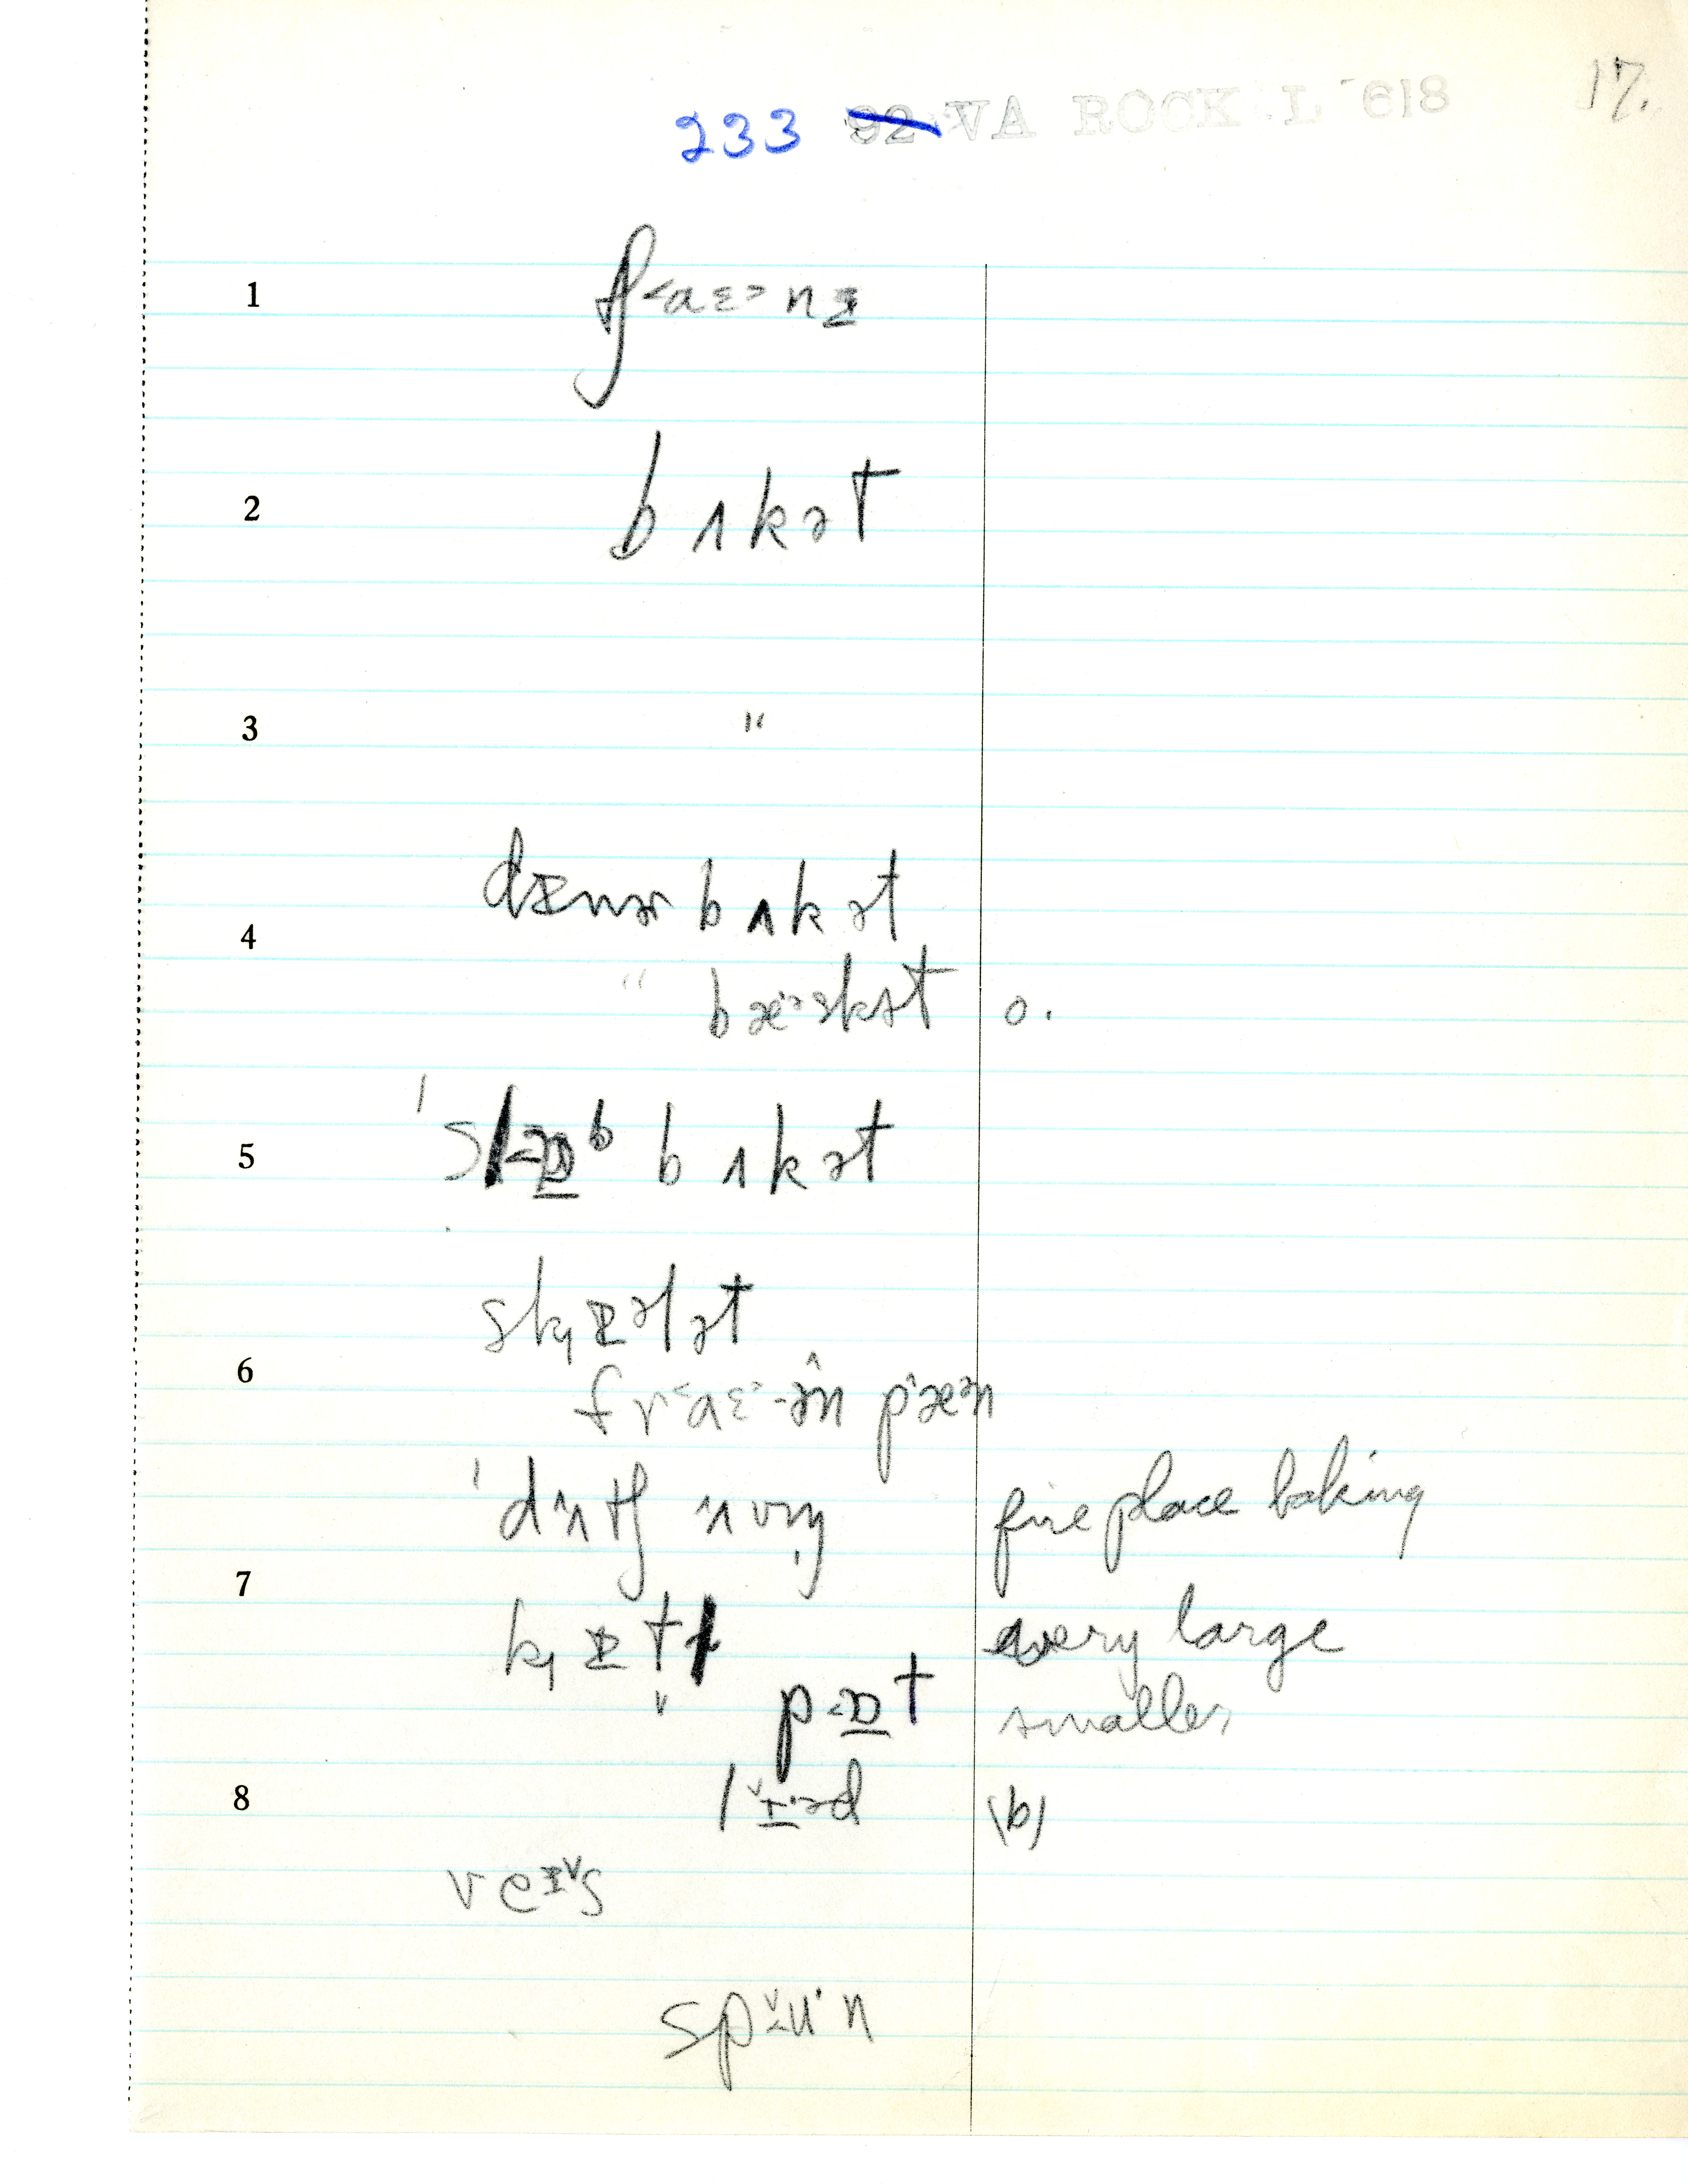 17.
233 92 VA ROCK L 618
1 tʃ˂aɛ˃nɪ
2 bʌkət
3 "
4 dɪnər bʌkət
" bæˑəskət o.
5 ˈslɒb bʌkət
skɪələt
6 fr˂aɛ˃ən pæən
ˈdʌtʃ ʌvn fireplace baking
7 kɪtl very large
" pɒt smaller
8 lɪˑəd (b)
veɪs
spuˑn